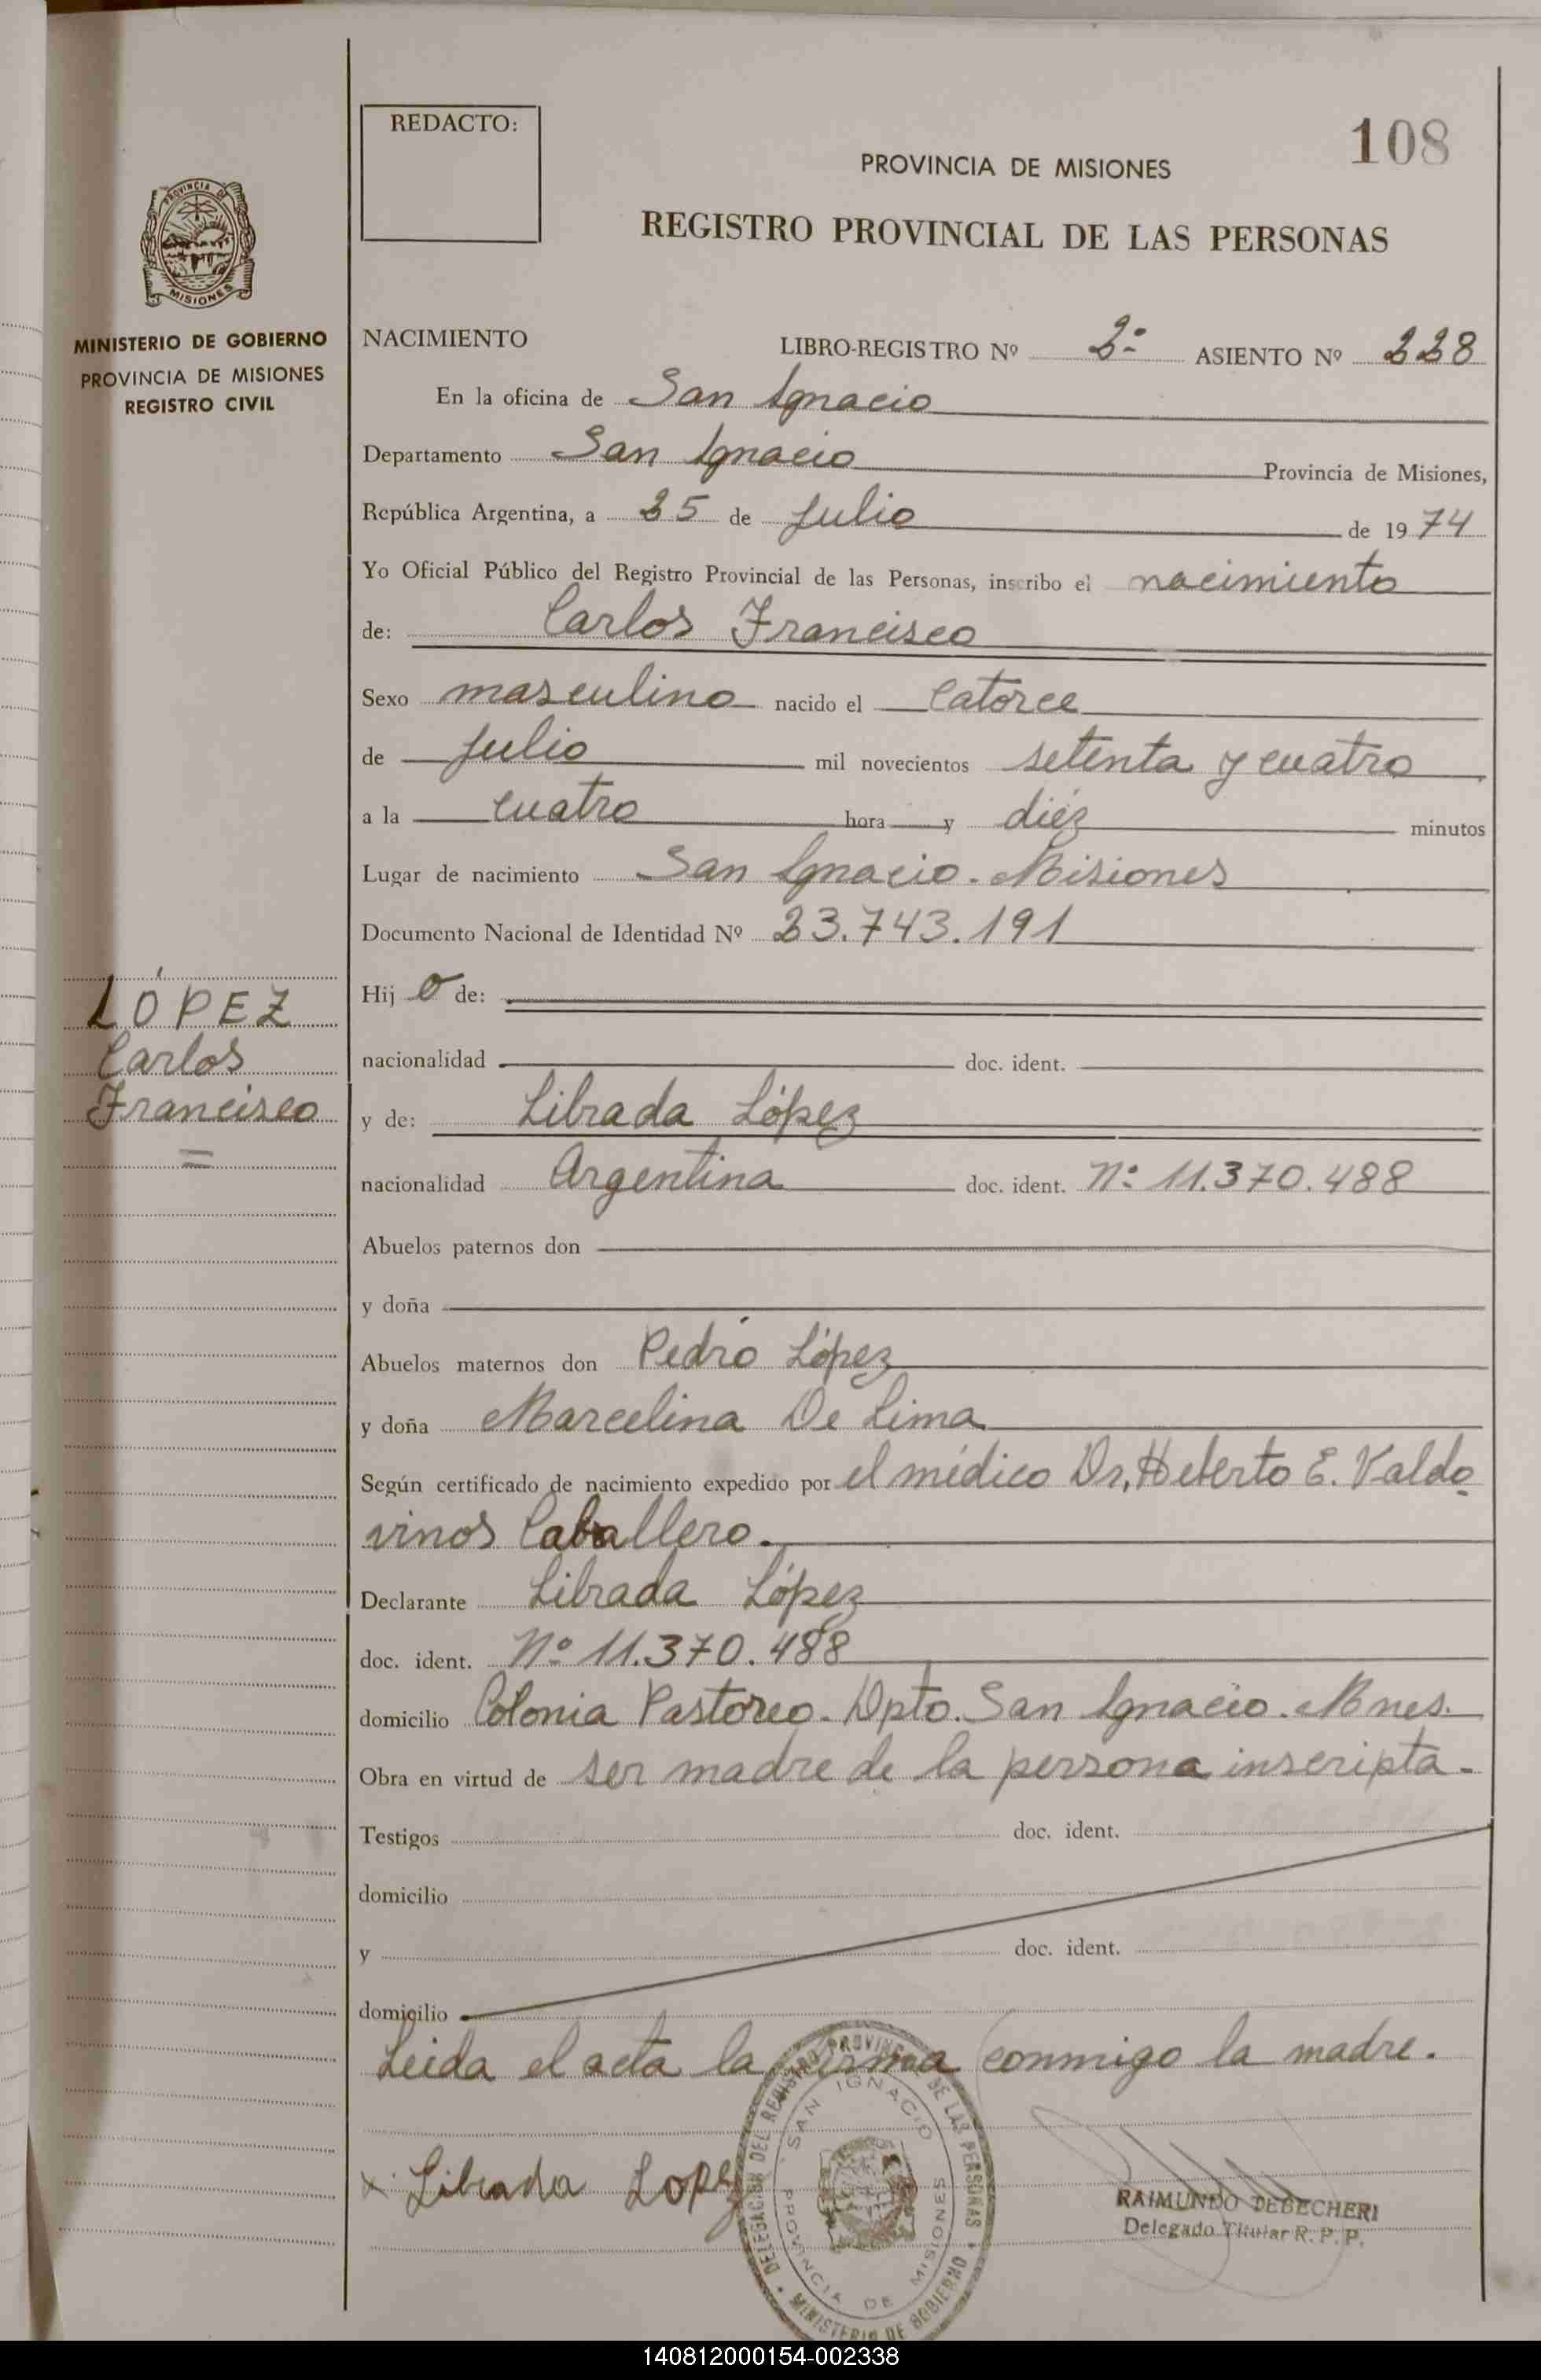 108
REDACTO:
PROVINCIA DE MISIONES
REGISTRO PROVINCIAL DE LAS PERSONAS
PROVINCIA DE
MISIONES
MINISTERIO DE GOBIERNO
PROVINCIA DE MISIONES
REGISTRO CIVIL
NACIMIENTO LIBRO-REGISTRO Nº 2º ASIENTO Nº 228
En la oficina de San Ignacio
Departamento San Ignacio Provincia de Misiones,
República Argentina, a 25 de Julio de 1974
Yo Oficial Público del Registro Provincial de las Personas, inscribo el nacimiento
de: Carlos Francisco
Sexo masculino nacido el catorce
de Julio mil novecientos setenta y cuatro
a la cuatro hora y diéz minutos
Lugar de nacimiento San Ignacio - Misiones
Documento Nacional de Identidad Nº 23.743.191
Hijo de:
nacionalidad doc. ident.
y de: Librada López
nacionalidad Argentina doc. ident. Nº 11.370.488
Abuelos paternos don
y doña
Abuelos maternos don Pedro López
y doña Marcelina De Lima
Según certificado de nacimiento expedido por el médico Dr. Heberto E. Valdo
vinos Caballero.
Declarante Librada López
doc. ident. Nº 11.370.488
domicilio Colonia Pastoreo. Dpto. San Ignacio. Mnes.
Obra en virtud de ser madre de la persona inscripta.
Testigos doc. ident.
domicilio
y doc. ident.
domicilio
Leida el acta la firma conmigo la madre.
LÓPEZ
Carlos
Francisco
x Librada Lopez
DELEGACION DEL REGISTRO PROVINCIAL DE LAS PERSONAS
MINISTERIO DE GOBIERNO
SAN IGNACIO
PROVINCIA DE MISIONES
RAIMUNDO DEBECHERI
Delegado Titular R. P. P.
140812000154-002338